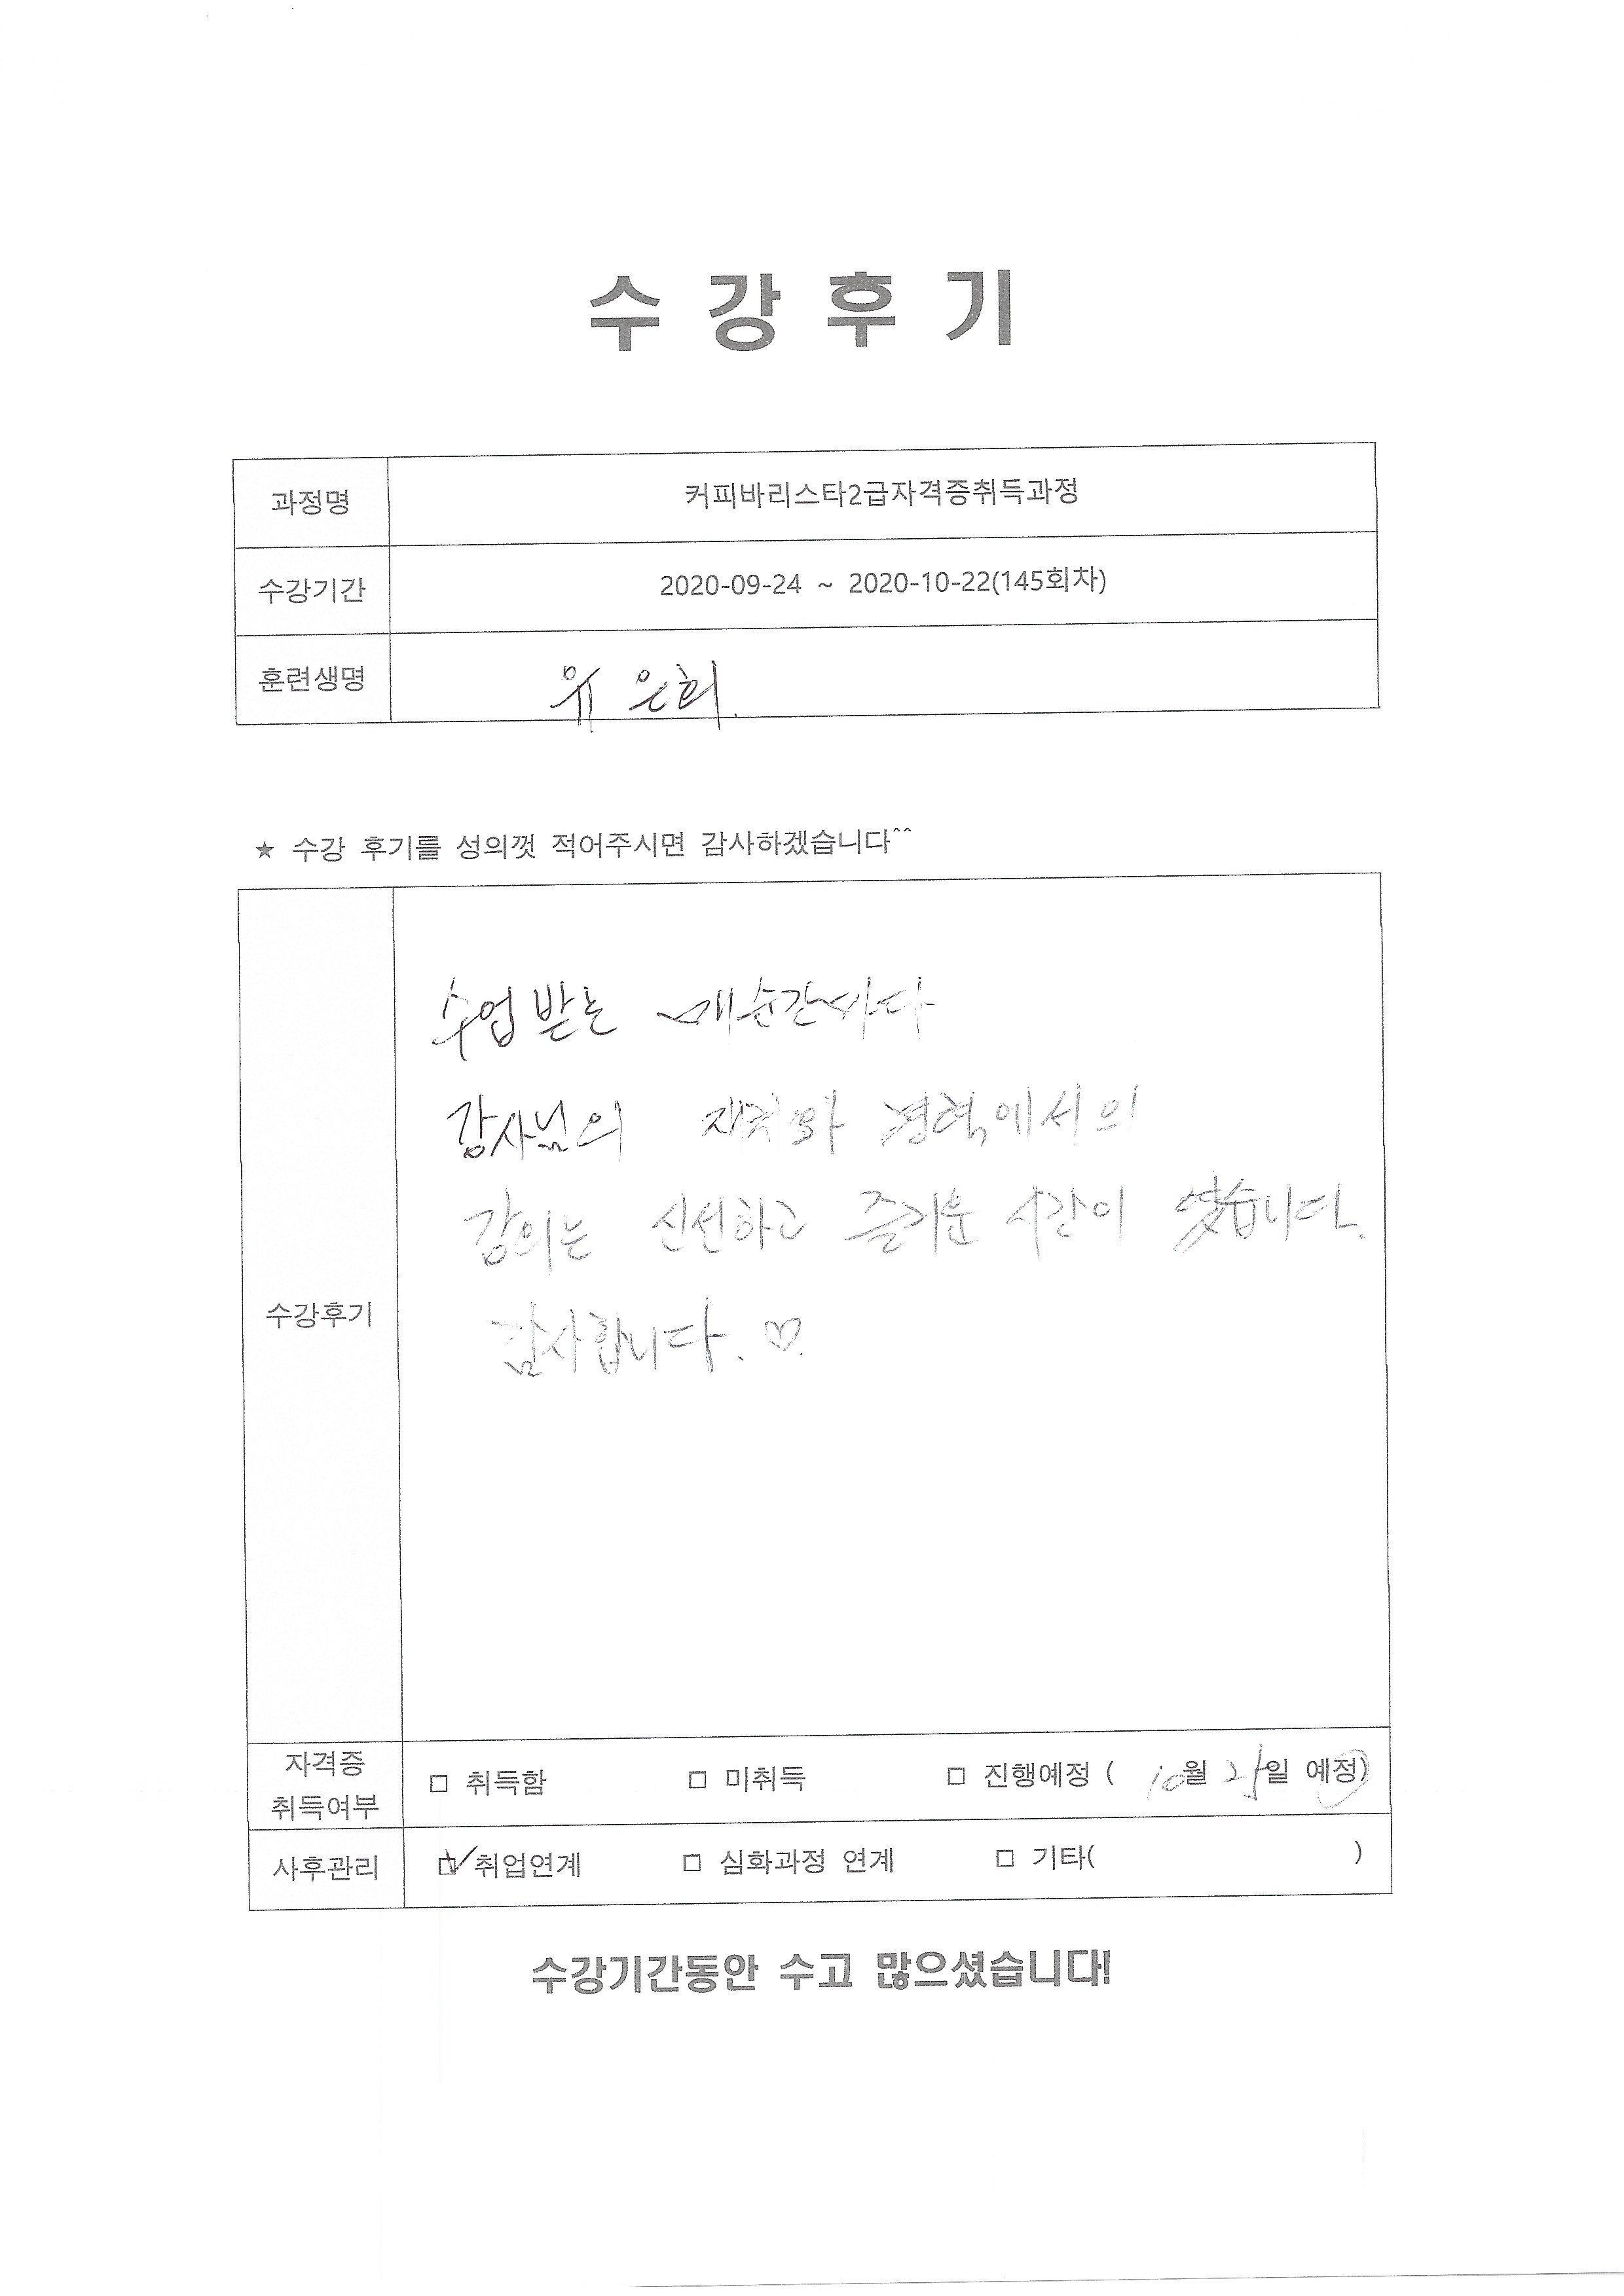 수 강 후 기
과정명 커피바리스타2급자격증취득과정
수강기간 2020-09-24 ~ 2020-10-22(145회차)
훈련생명 유은희.
★ 수강 후기를 성의껏 적어주시면 감사하겠습니다^^
수업 받는 매순간마다
강사님의 경력에서의
강의는 신선하고 즐거운 시간이 였습니다.
감사합니다. ♡.
수강후기
자격증 취득여부 □ 취득함 □ 미취득 □ 진행예정 ( 10월 25일 예정)
사후관리 ☑ 취업연계 □ 심화과정 연계 □ 기타( )
수강기간동안 수고 많으셨습니다!